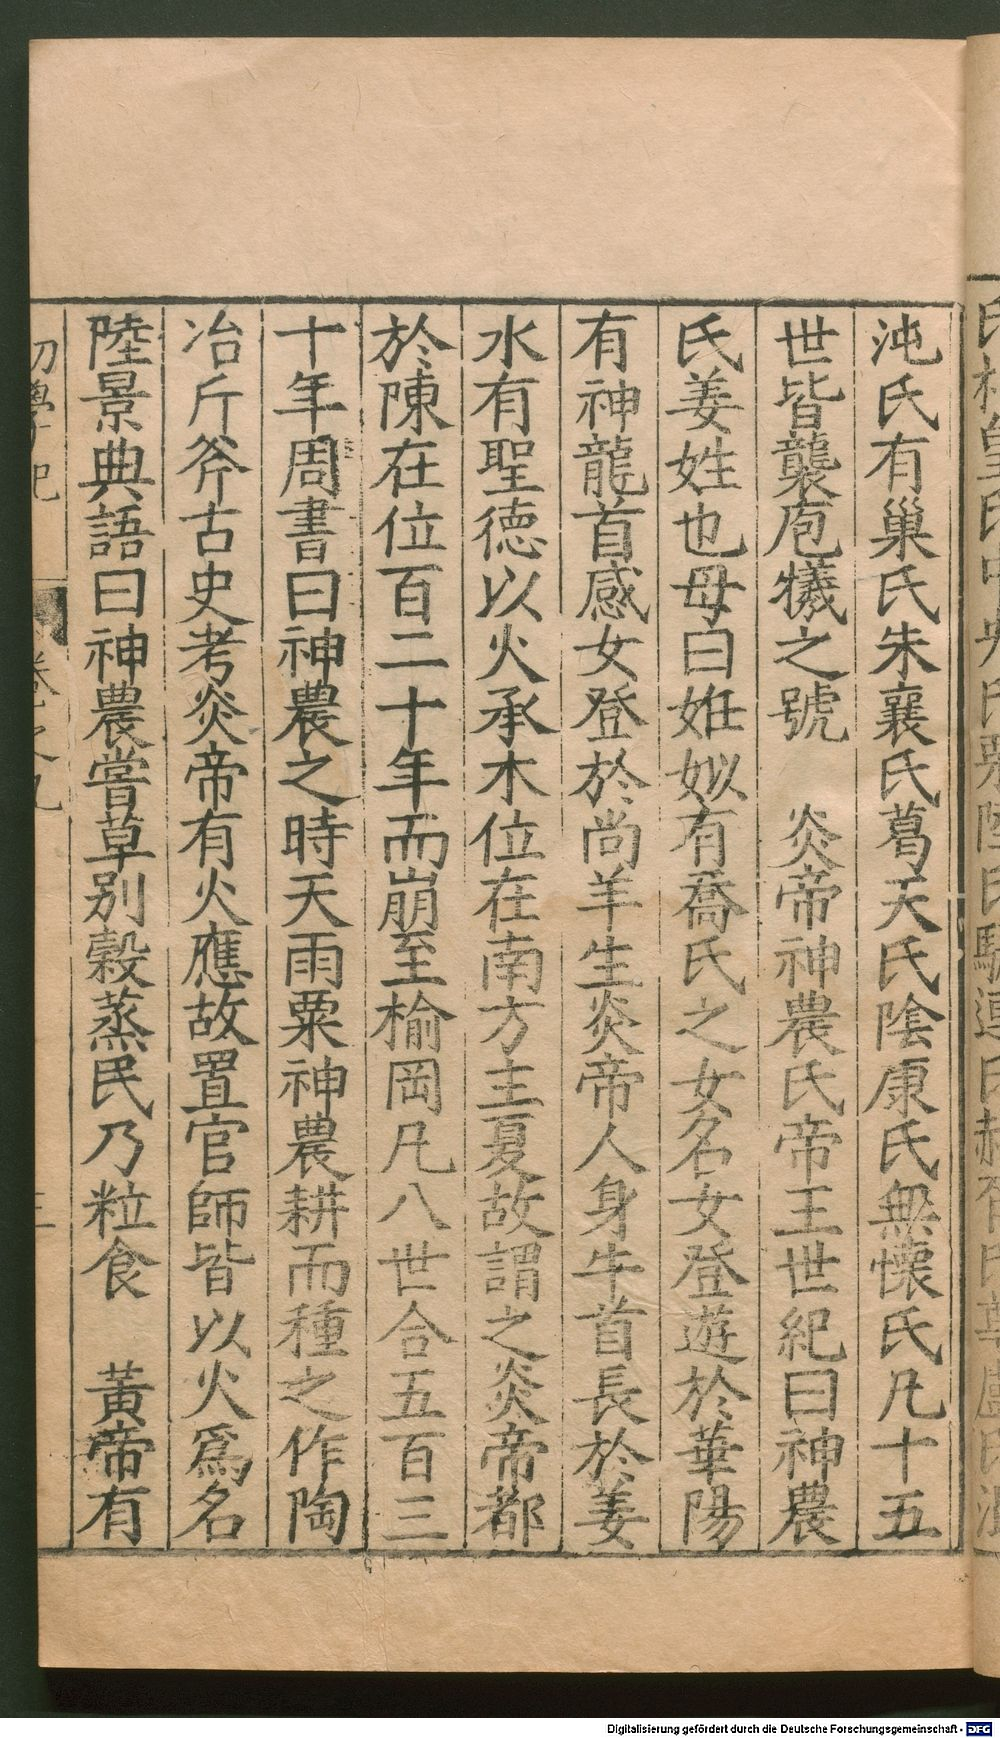 沌氏有巢氏朱襄氏葛天氏陰康氏無懷氏凡十五
世皆襲庖犧之號　炎帝神農氏帝王世紀曰神農
氏姜姓也母曰妊姒有喬氏之女名女登遊於華陽
有神龍首感女登於尚羊生炎帝人身牛首長於姜
水有聖德以火承木位在南方主夏故謂之炎帝都
於陳在位百二十年而崩至榆岡凡八世合五百三
十年周書曰神農之時天雨粟神農耕而種之作陶
冶斤斧古史考炎帝有火應故置官師皆以火爲名
陸景典語曰神農嘗草别穀蒸民乃粒食　黃帝有
初學記
卷之九
Digitalisierung gefördert durch die Deutsche Forschungsgemeinschaft - DFG